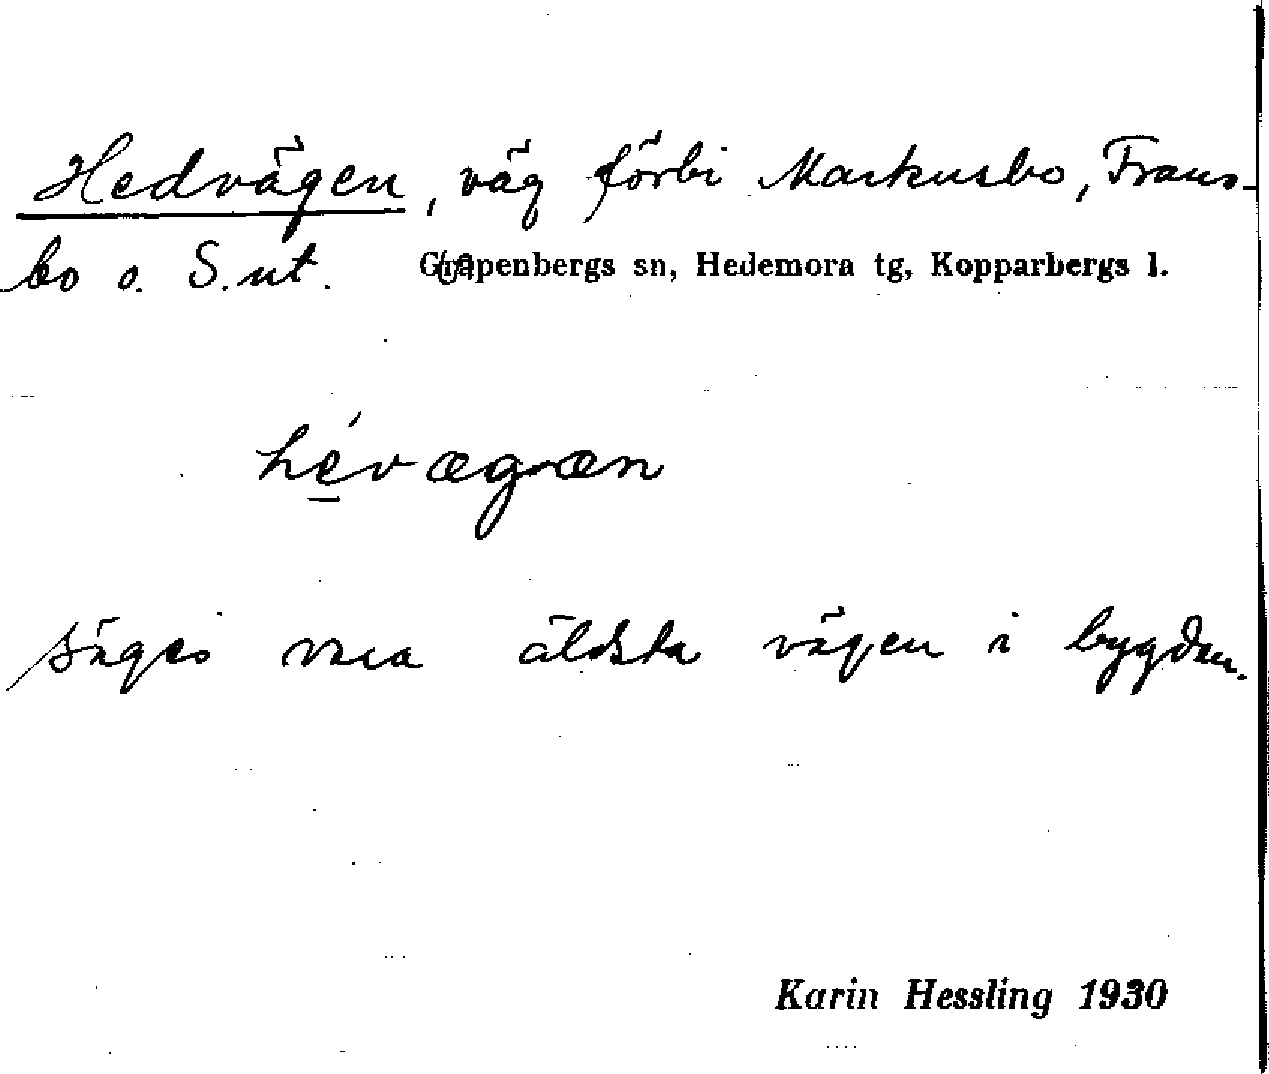 Hedvägen, väg förbi Markusbo, Frans-
bo o. S. ut. Garpenbergs sn, Hedemora tg, Kopparbergs l.
hé̱vægæn
säges vara äldsta vägen i bygden.
Karin Hessling 1930